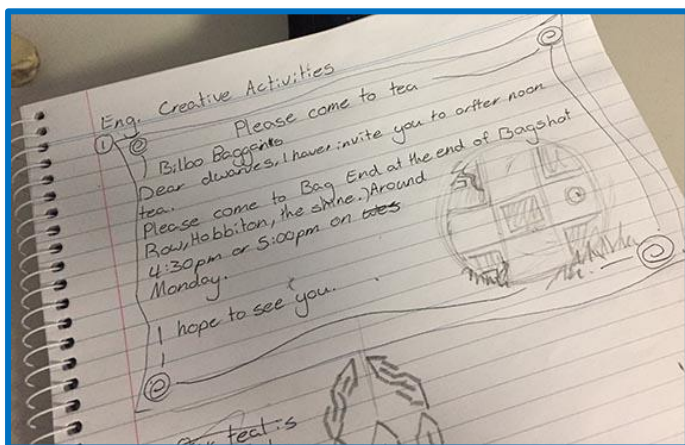 Eng. Creative Activities
1
Please come to tea
Bilbo Baggenis
Dear dwarves, I haven invite you to after noon
tea.
Please come to Bag End at the end of Bagshot
Row, Hobbiton, the shine.) Around
4:30pm or 5:00pm on wes
Monday.
I hope to see you.
teat is